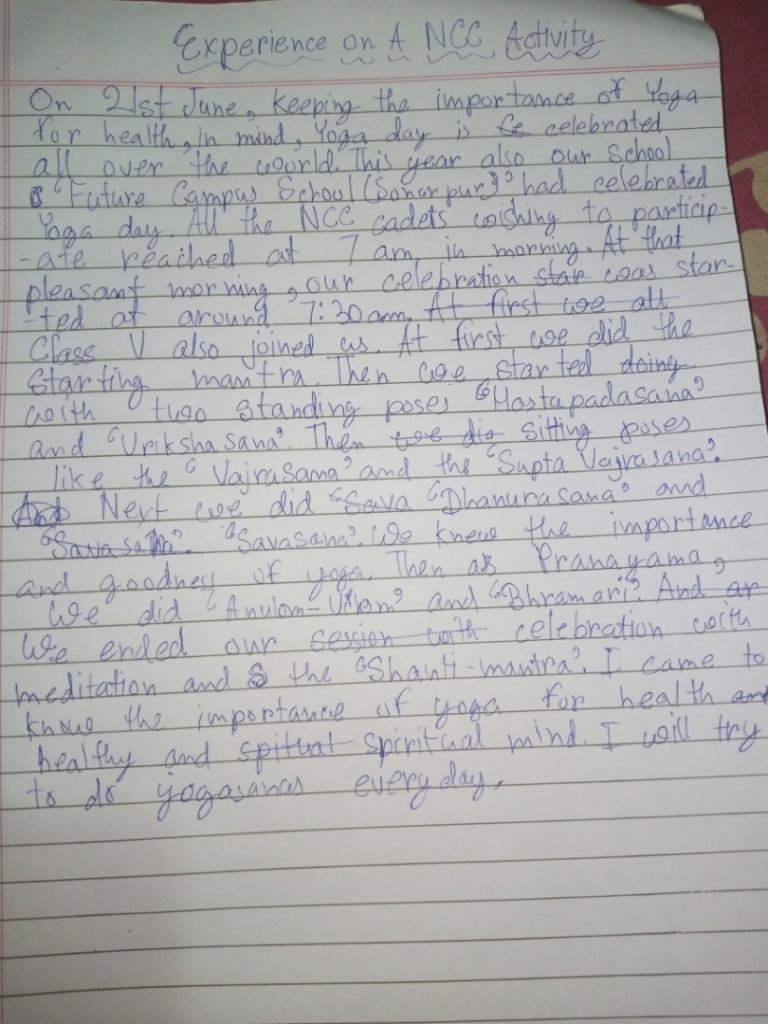 Experience on A NCC Activity
On 21st June, keeping the importance of Yoga
for health, in mind, Yoga day is celebrated
all over the world. This year also our School
"Future Campus School (Sonarpur)" had celebrated
Yoga day. All the NCC cadets wishing to particip-
-ate reached at 7 am, in morning. At that
pleasant morning, our celebration was star-
-ted at around 7:30 am. At first we all
Class V also joined us. At first we did the
starting mantra. Then we started doing
with two standing poses "Hastapadasana"
and "Vrikshasana". Then we did sitting poses
like the "Vajrasana" and the "Supta Vajrasana".
And Next we did "Sava "Dhanurasana" and
"Savasana". "Savasana". We knew the importance
and goodness of yoga. Then as Pranayama,
We did "Anulom-Vilom" and "Bhramari". And
We ended our session with celebration with
meditation and the "Shanti-mantra". I came to
know the importance of yoga for health and
healthy and spitual spiritual mind. I will try
to do yogasanas everyday.